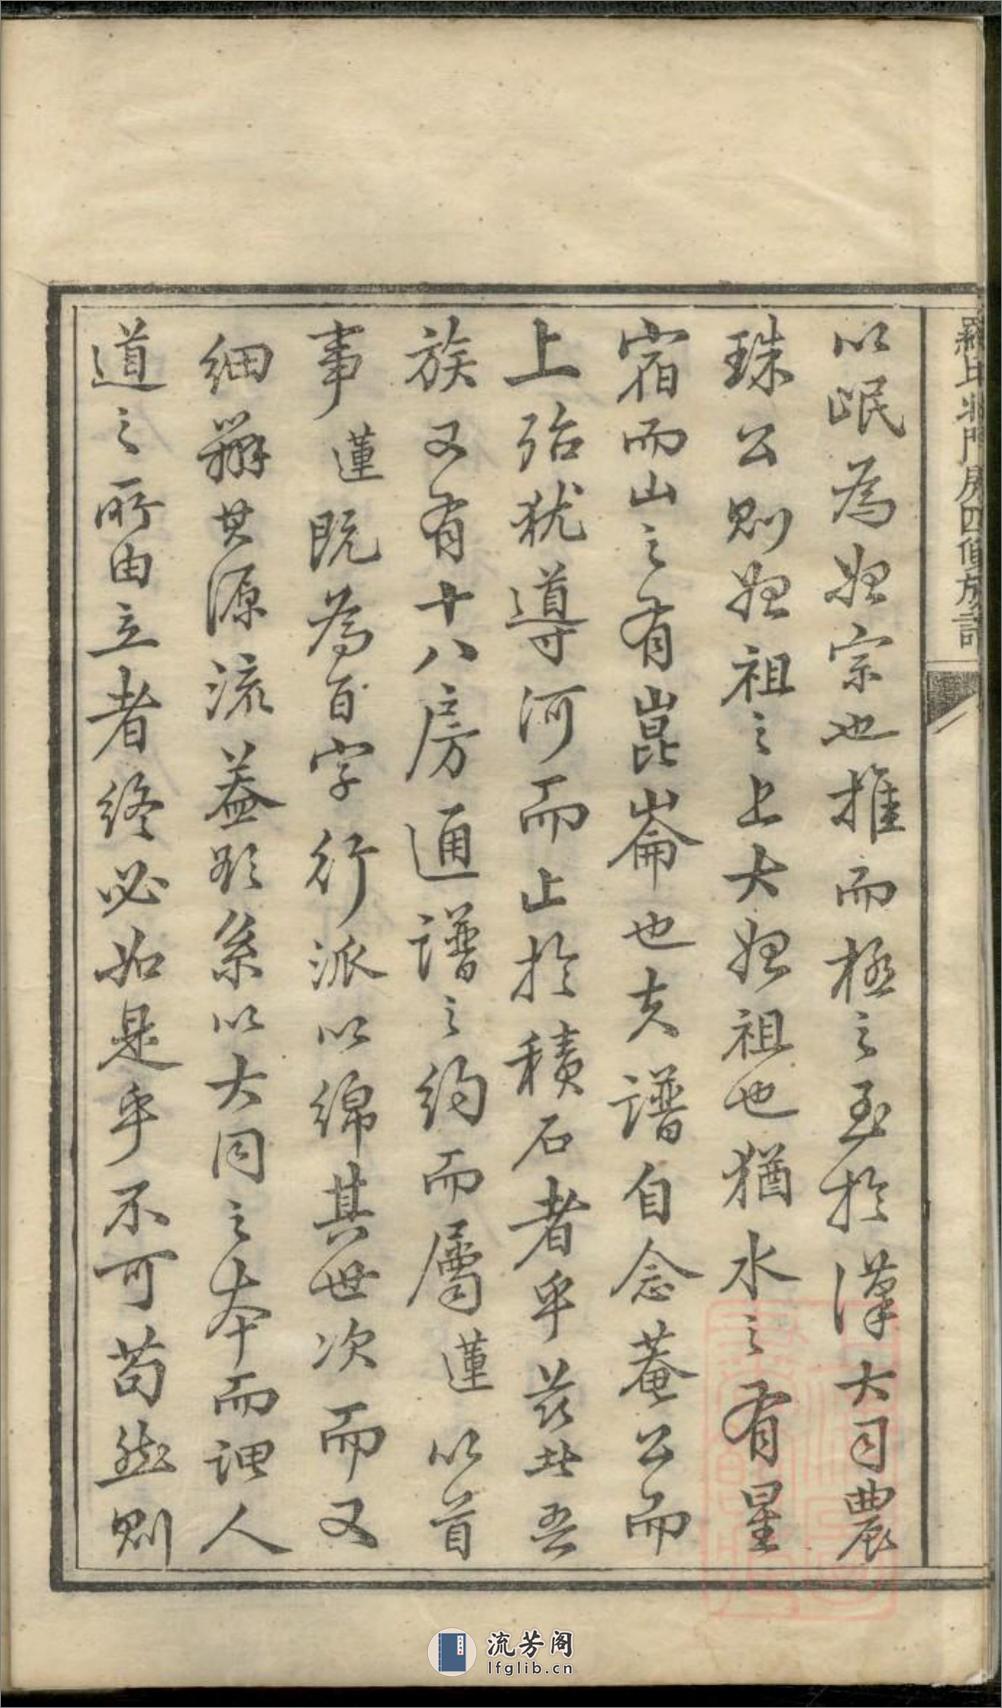 羅氏北門房四修族譜
以岷為始宗也推而極之至於漢大司農
珠公則始祖之上大始祖也猶水之有星
宿而山之有崑崙也夫譜自念菴公而
上殆猶導河而止於積石者乎茲北吾
族又有十八房通譜之約而屬蓮以首
事蓮既為百字行派以綿其世次而又
細辨其源流蓋欲系以大同之本而謂人
道之所由立者終必如是乎不可苟然則
流芳阁
lfglib.cn